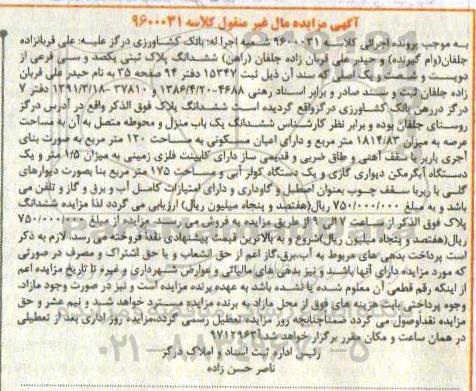 آگهی مزایده مال غیر منقول کلاسه ۹۶۰۰۰۳۱
به موجب پرونده اجرائی کلاسه ۹۶۰۰۰۳۱ شعبه اجرا له: بانک کشاورزی درگز علیه: علی قربانزاده
جلفان(وام گیرنده) و حیدر علی قربان زاده جلفان (راهن) ششدانگ پلاک ثبتی یکصد و سی فرعی از
دویست و شصت و یک اصلی که سند آن ذیل ثبت ۱۵۳۴۷ دفتر ۹۴ صفحه ۳۵ به نام حیدر علی قربان
زاده جلفان ثبت و سند صادر و برابر اسناد رهنی ۴۶۸۸-۱۳۸۶/۴/۲۰ و ۳۷۸۱۰ -۱۳۹۱/۳/۱۸ دفتر ۷
درگز دررهن بانک کشاورزی درگزواقع گردیده است ششدانگ پلاک فوق الذکر واقع در آدرس درگز
روستای جلفان بوده و برابر نظر کارشناس ششدانگ یک باب منزل و محوطه متصل به آن به مساحت
عرصه به میزان ۱۸۱۴/۸۳ متر مربع و دارای اعیان مسکونی به مساحت ۱۳۰ متر مربع به صورت بنای
آجری باربر با سقف آهنی و طاق ضربی و قدیمی ساز دارای کابینت فلزی زمینی به میزان ۱/۵ متر و یک
دستگاه آبگرمکن دیواری گازی و یک دستگاه کولر آبی و مساحت ۱۷۵ متر مربع بنا بصورت دیوارهای
گلی با زیربا سقف چوب بعنوان اصطبل و گاوداری و دارای امتیازات کامل آب و برق و گاز و تلفن می
باشد و به مبلغ ۷۵۰/۰۰۰/۰۰۰ ریال(هفتصد و پنجاه میلیون ریال) ارزیابی می گردد لذا مزایده ششدانگ
پلاک فوق الذکر از ساعت ۷ الی ۹ از طریق مزایده به فروش می رسد. مزایده از مبلغ ۷۵۰/۰۰۰/۰۰۰
ریال(هفتصد و پنجاه میلیون ریال)شروع و به بالاترین قیمت پیشنهادی نقدا فروخته می رسد. لازم به ذکر
است پرداخت بدهی های مربوط به آب،برق،گاز اعم از حق انشعاب و یا حق اشتراک و مصرف در صورتی
که مورد مزایده دارای آنها باشد و نیز بدهی های مالیاتی و عوارض شهرداری و غیره تا تاریخ مزایده اعم
از اینکه رقم قطعی آن معلوم شده یا نشده باشد به عهده برنده مزایده است و نیز در صورت وجود مازاد،
وجوه پرداختی بابت هزینه های فوق از محل مازاد به برنده مزایده مسترد خواهد شد و نیم عشر و حق
مزایده نقداوصول می گردد ضمناچنانچه روز مزایده تعطیل رسمی گردد،مزایده روز اداری بعد از تعطیلی
در همان ساعت و مکان مقرر برگزار خواهد شد.۹۷۱۲۹۶۳
رئیس اداره ثبت اسناد و املاک درگز
ناصر حسن زاده